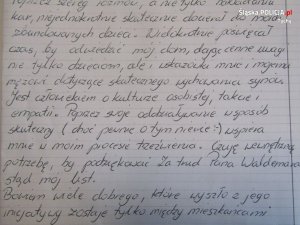 Śląska POLICJA.pl
poprzez szereg rozmów, a nie tylko nakładania
kar, niejednokrotnie skutecznie dotarł do moich
zbuntowanych dzieci. Wielokrotnie poświęcał
czas, by odwiedzać mój dom, dając cenne uwagi
nie tylko dzieciom, ale i wskazówki mnie i mojemu
mężowi dotyczące skutecznego wychowania synów.
Jest człowiekiem o kulturze osobistej, takcie i
empatii. Poprzez swoje oddziaływanie w sposób
skuteczny (choć pewnie o tym nie wie :) wspiera
mnie w moim procesie trzeźwienia. Czuję wewnętrzną
potrzebę, by podziękować za trud Pana Waldemara
stąd mój list.
Bowiem wiele dobrego, które wyszło z jego
inicjatywy zostaje tylko między mieszkańcami